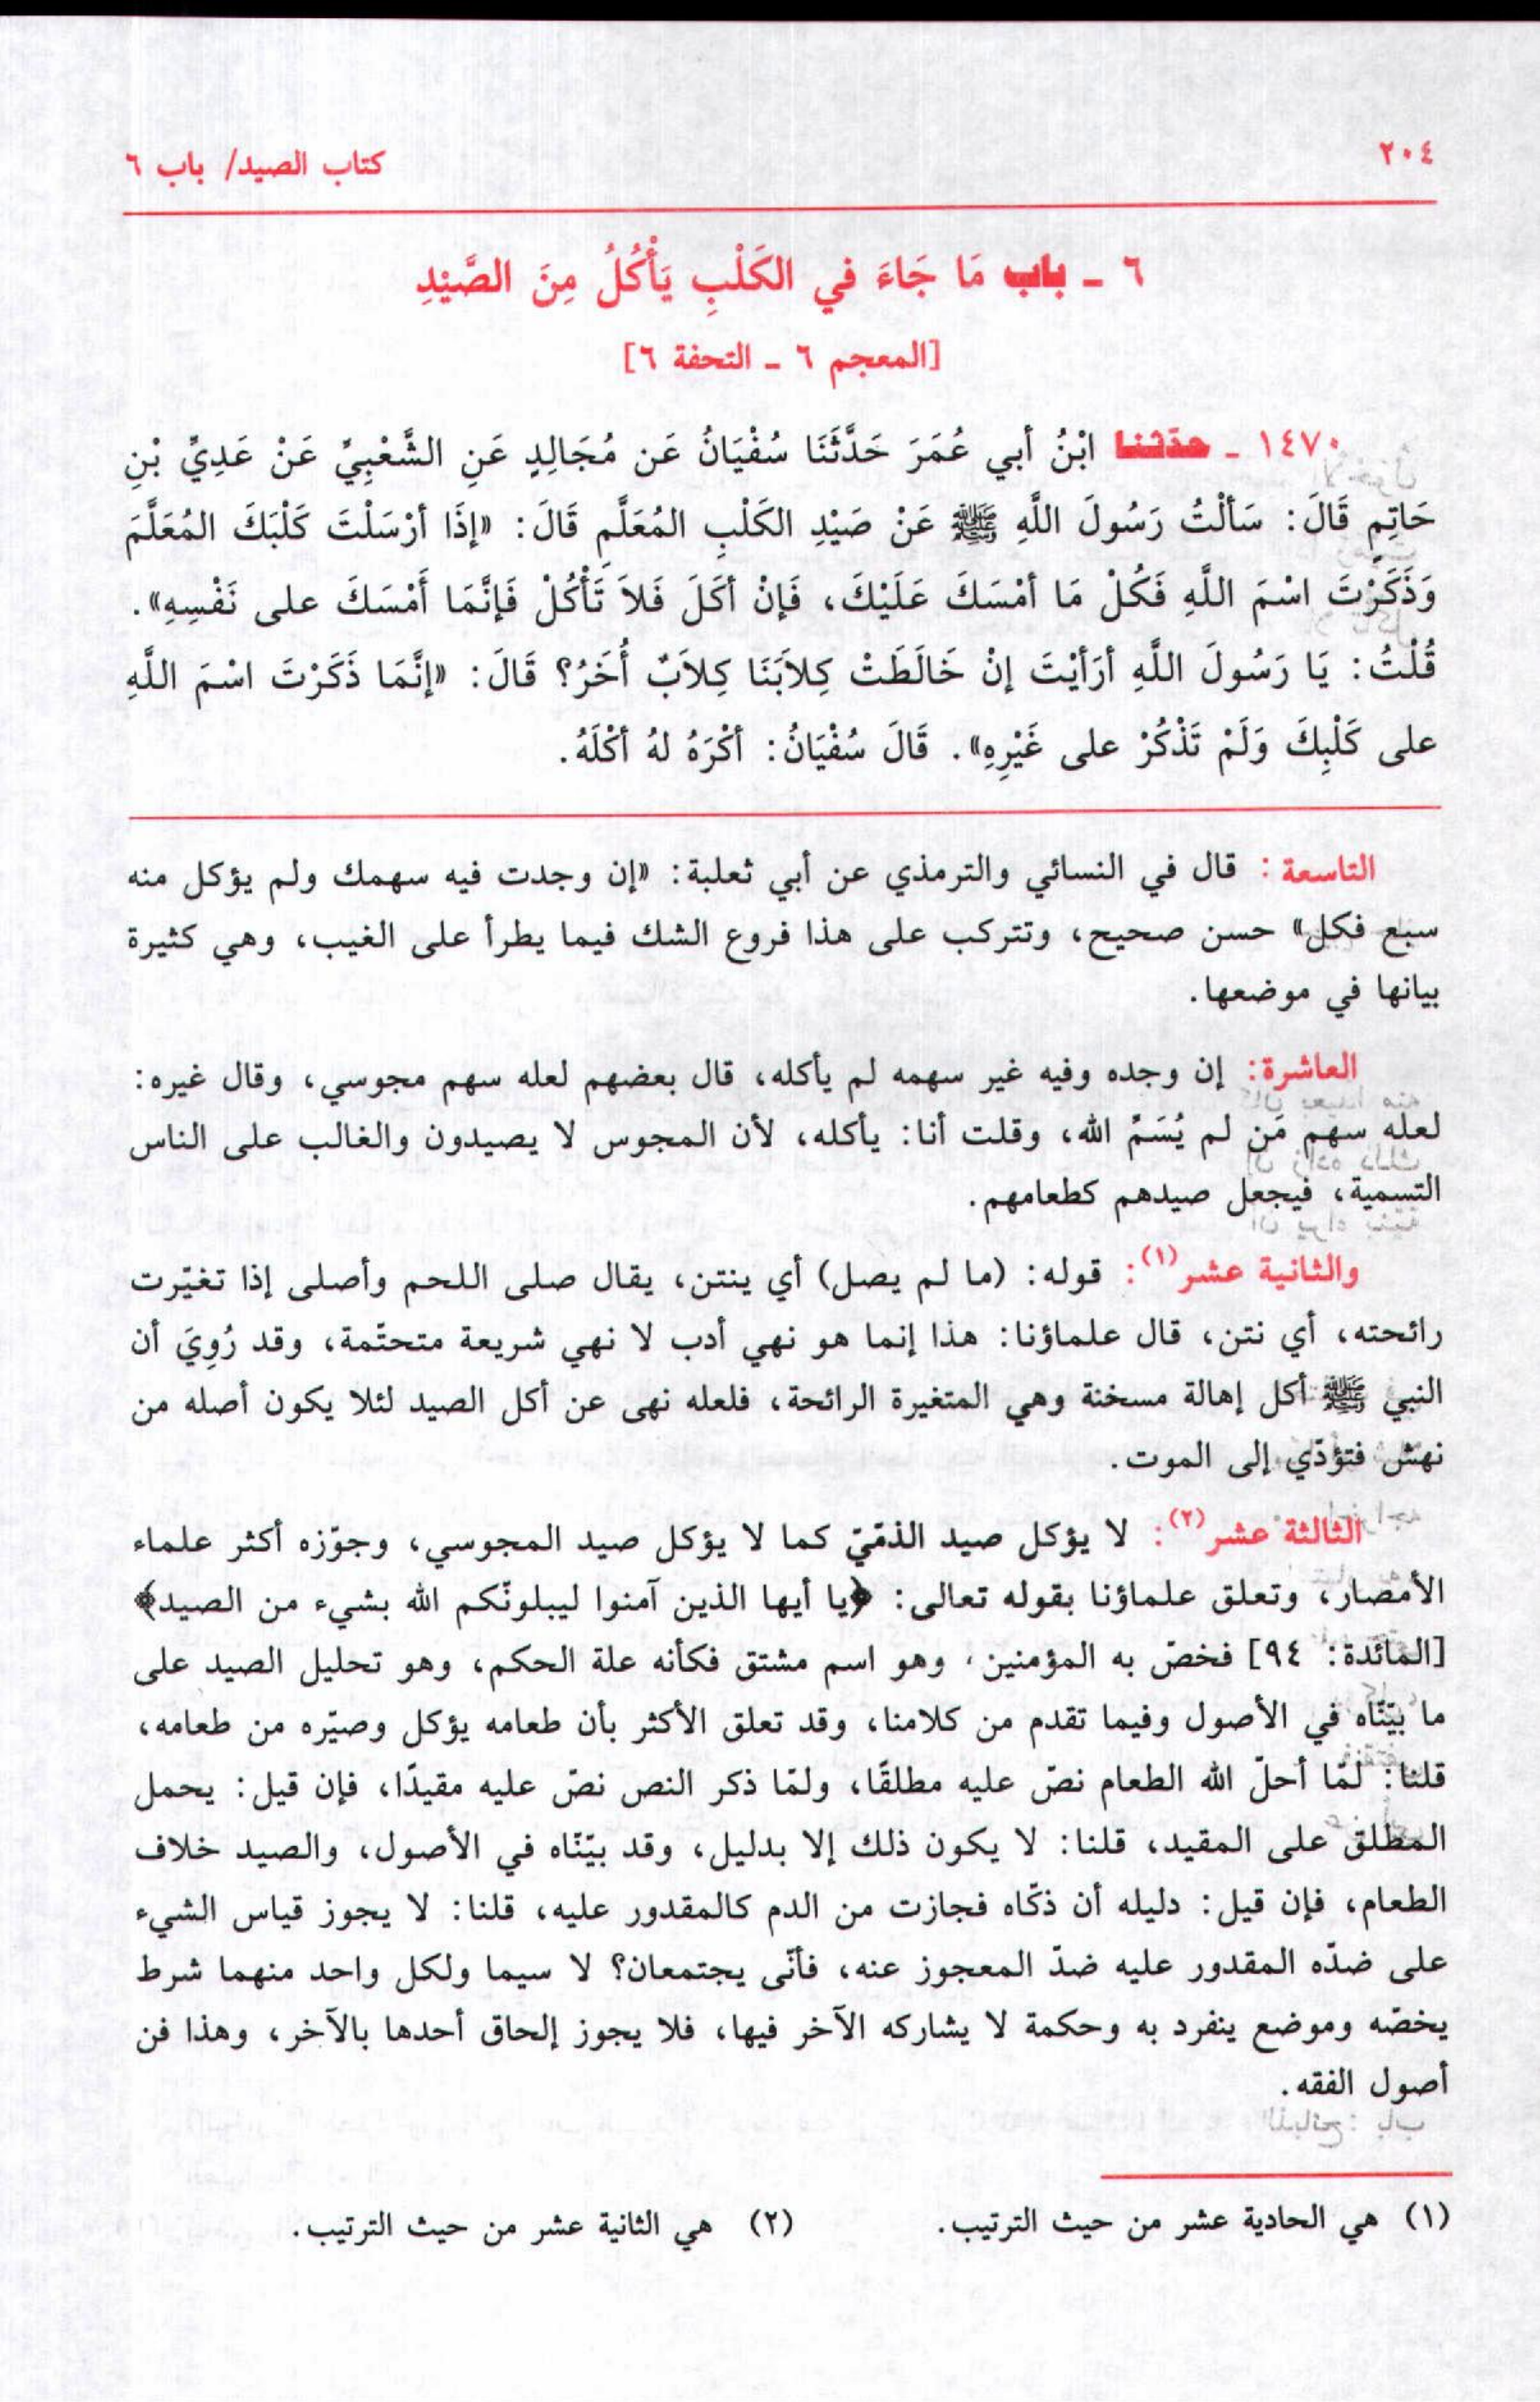 ٢٠٤
كتاب الصيد/ باب ٦
٦ ـ باب مَا جَاءَ في الكَلْبِ يَأْكُلُ مِنَ الصَّيْدِ
[المعجم ٦ ـ التحفة ٦]
١٤٧٠ ـ حدّثنا ابْنُ أبي عُمَرَ حَدَّثَنَا سُفْيَانُ عَن مُجَالِدٍ عَنِ الشَّعْبِيِّ عَنْ عَدِيِّ بْنِ
حَاتِمٍ قَالَ: سَألْتُ رَسُولَ اللَّهِ ﷺ عَنْ صَيْدِ الكَلْبِ المُعَلَّمِ قَالَ: «إذَا أرْسَلْتَ كَلْبَكَ المُعَلَّمَ
وَذَكَرْتَ اسْمَ اللَّهِ فَكُلْ مَا أمْسَكَ عَلَيْكَ، فَإنْ أكَلَ فَلاَ تَأْكُلْ فَإنَّمَا أَمْسَكَ على نَفْسِهِ».
قُلْتُ: يَا رَسُولَ اللَّهِ أرَأيْتَ إنْ خَالَطَتْ كِلاَبَنَا كِلاَبٌ أُخَرُ؟ قَالَ: «إنَّمَا ذَكَرْتَ اسْمَ اللَّهِ
على كَلْبِكَ وَلَمْ تَذْكُرْ على غَيْرِهِ». قَالَ سُفْيَانُ: أكْرَهُ لهُ أكْلَهُ.
التاسعة: قال في النسائي والترمذي عن أبي ثعلبة: «إن وجدت فيه سهمك ولم يؤكل منه
سبع فكل» حسن صحيح، وتتركب على هذا فروع الشك فيما يطرأ على الغيب، وهي كثيرة
بيانها في موضعها.
العاشرة: إن وجده وفيه غير سهمه لم يأكله، قال بعضهم لعله سهم مجوسي، وقال غيره:
لعله سهم مَن لم يُسَمِّ الله، وقلت أنا: يأكله، لأن المجوس لا يصيدون والغالب على الناس
التسمية، فيجعل صيدهم كطعامهم.
والثانية عشر(١): قوله: (ما لم يصل) أي ينتن، يقال صلى اللحم وأصلى إذا تغيّرت
رائحته، أي نتن، قال علماؤنا: هذا إنما هو نهي أدب لا نهي شريعة متحتّمة، وقد رُوِيَ أن
النبي ﷺ أكل إهالة مسخنة وهي المتغيرة الرائحة، فلعله نهى عن أكل الصيد لئلا يكون أصله من
نهش فتؤدّي إلى الموت.
الثالثة عشر(٢): لا يؤكل صيد الذمّيّ كما لا يؤكل صيد المجوسي، وجوّزه أكثر علماء
الأمصار، وتعلق علماؤنا بقوله تعالى: ﴿يا أيها الذين آمنوا ليبلونّكم الله بشيء من الصيد﴾
[المائدة: ٩٤] فخصّ به المؤمنين، وهو اسم مشتق فكأنه علة الحكم، وهو تحليل الصيد على
ما بيّنّاه في الأصول وفيما تقدم من كلامنا، وقد تعلق الأكثر بأن طعامه يؤكل وصيّره من طعامه،
قلنا: لمّا أحلّ الله الطعام نصّ عليه مطلقًا، ولمّا ذكر النص نصّ عليه مقيدًا، فإن قيل: يحمل
المطلق على المقيد، قلنا: لا يكون ذلك إلا بدليل، وقد بيّنّاه في الأصول، والصيد خلاف
الطعام، فإن قيل: دليله أن ذكّاه فجازت من الدم كالمقدور عليه، قلنا: لا يجوز قياس الشيء
على ضدّه المقدور عليه ضدّ المعجوز عنه، فأنّى يجتمعان؟ لا سيما ولكل واحد منهما شرط
يخصّه وموضع ينفرد به وحكمة لا يشاركه الآخر فيها، فلا يجوز إلحاق أحدها بالآخر، وهذا فن
أصول الفقه.
(١) هي الحادية عشر من حيث الترتيب.
(٢) هي الثانية عشر من حيث الترتيب.